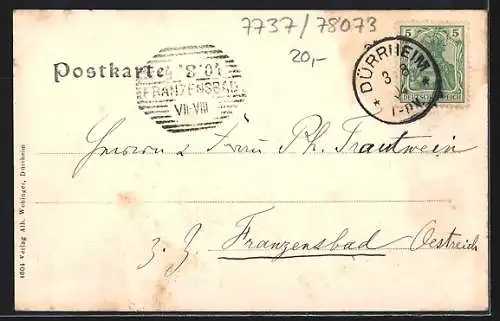 7737/78073
20,-
5 5
DEUTSCHES REICH
DÜRRHEIM
3 8
Postkarte
4 8 04
FRANZENSBAD
VII-VIII
Herrn u. Frau Ph. Trautwein
z. Z. Franzensbad Oestreich
1604 Verlag Alb. Wehinger, Dürrheim